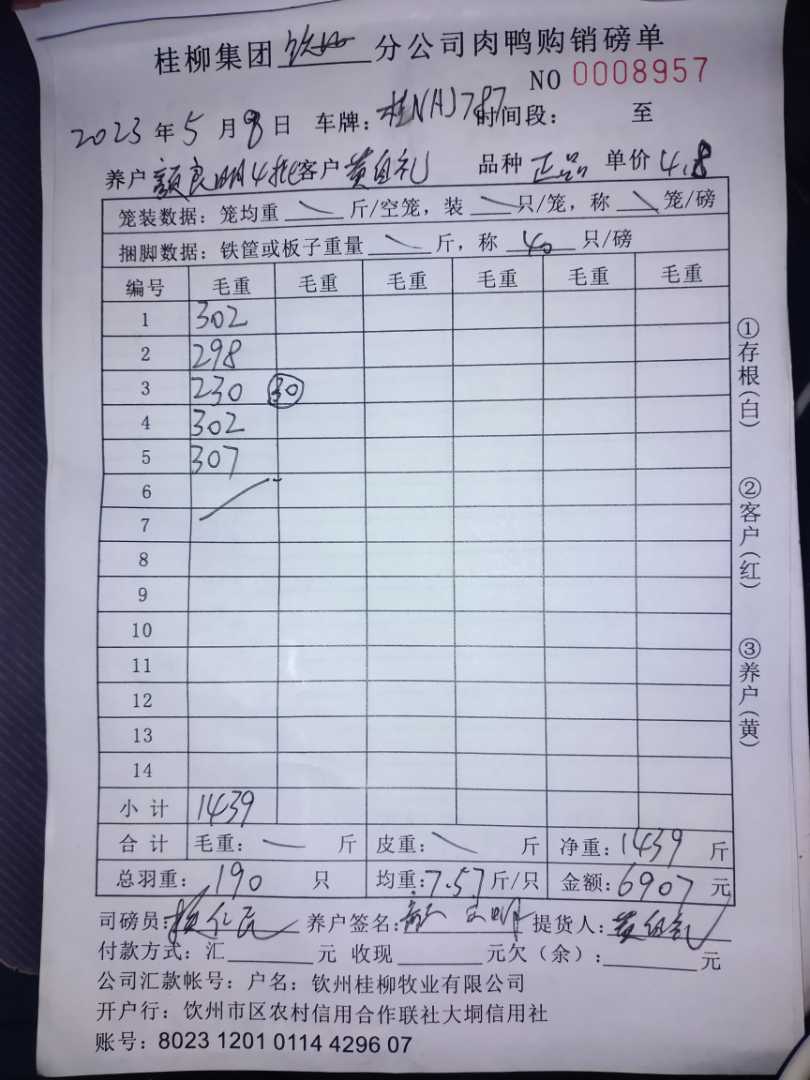 桂柳集团 钦州 分公司肉鸭购销磅单
NO 0008957
2023 年 5 月 8 日 车牌: 桂NHJ787 时间段: 至
养户 颜良明4批 客户 黄自礼 品种 正品 单价 4.8
笼装数据: 笼均重 斤/空笼, 装 只/笼, 称 笼/磅
捆脚数据: 铁筐或板子重量 斤, 称 40 只/磅
编号 毛重 毛重 毛重 毛重 毛重 毛重
1 302
2 298
3 230 30
4 302
5 307
6
7
8
9
10
11
12
13
14
小计 1439
合计 毛重: 斤 皮重: 斤 净重: 1439 斤
总羽重: 190 只 均重: 7.57 斤/只 金额: 6907 元
司磅员: 养户签名: 提货人:
付款方式: 汇 元 收现 元欠(余): 元
公司汇款帐号: 户名: 钦州桂柳牧业有限公司
开户行: 钦州市区农村信用合作联社大垌信用社
账号: 8023 1201 0114 4296 07
①存根(白)
②客户(红)
③养户(黄)